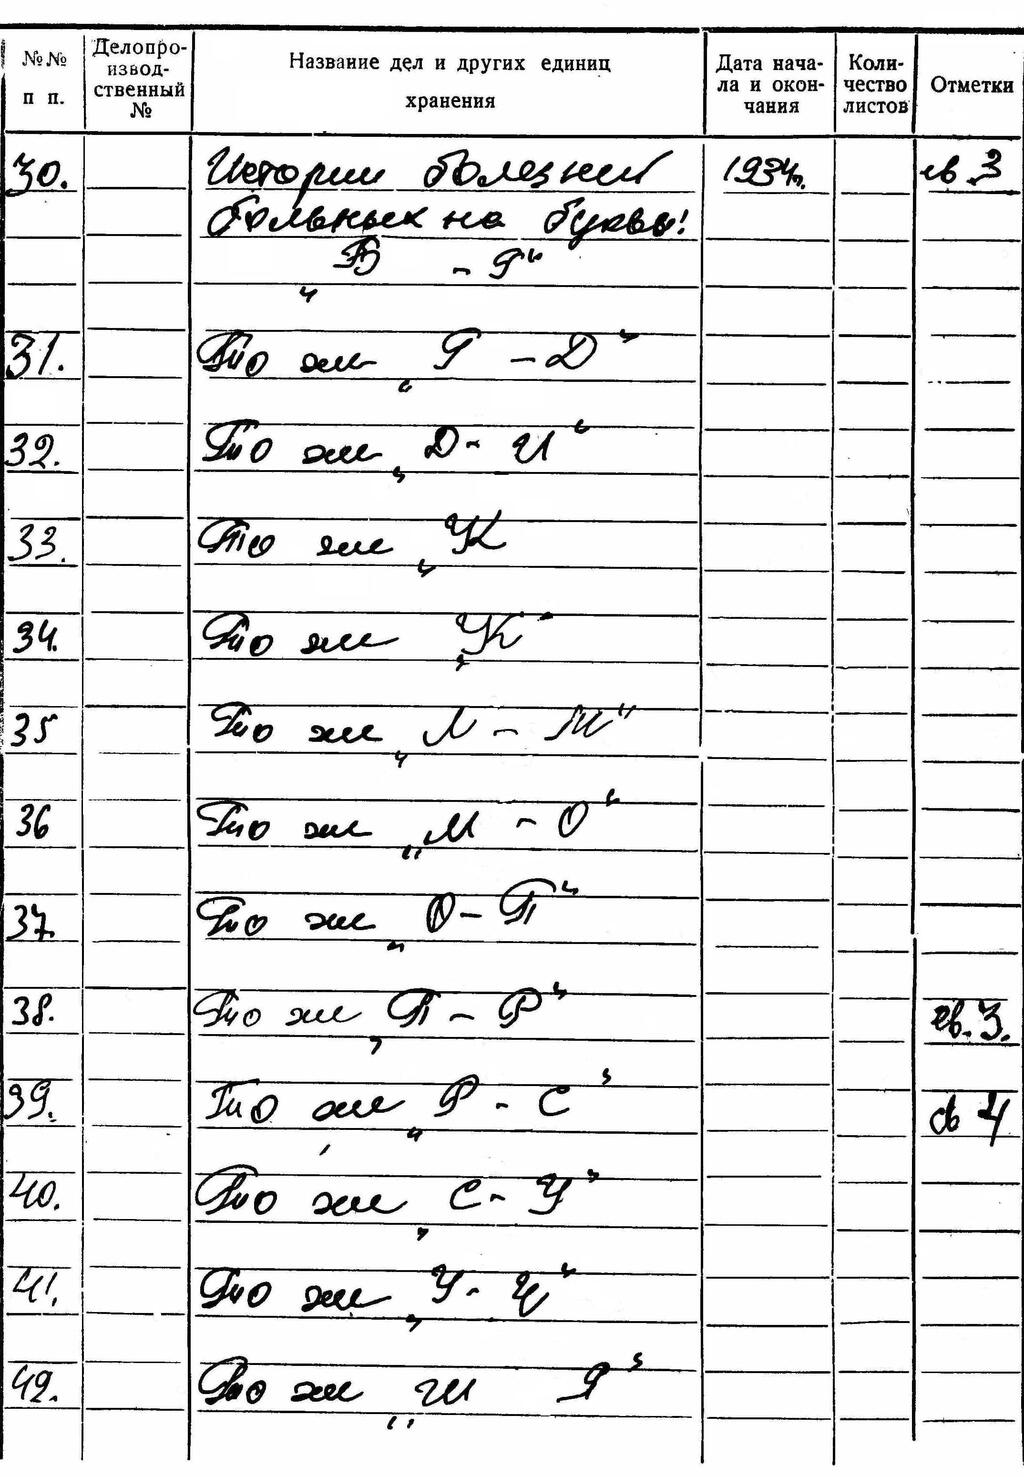 №№ п п.
Делопроизвод-ственный №
Название дел и других единиц хранения
Дата нача-ла и окон-чания
Коли-чество листов
Отметки
30. Истории болезний 1934г. св 3
больных на буквы!
„В - Г“
31. То же „Г - Д“
32. То же „Д - И“
33. То же „К
34. То же „К“
35 То же „Л - М“
36 То же „М - О“
37. То же „О - П“
38. То же „П - Р“ св. 3.
39. То же „Р - С“ св 4
40. То же „С - У“
41. То же „У - Ч“
42. То же „Ш Я“